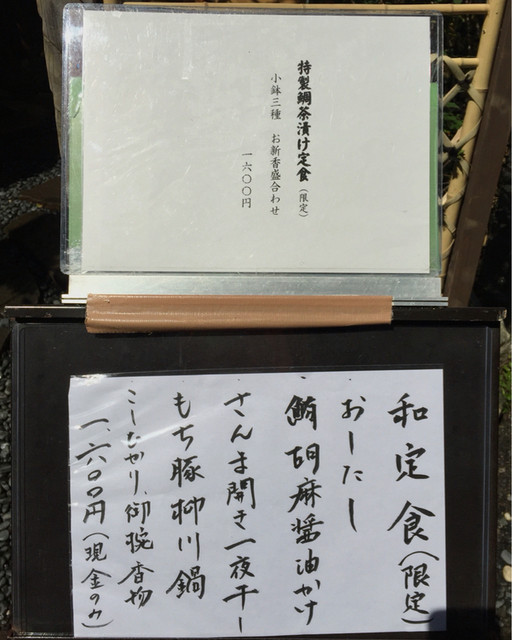 特製鯛茶漬け定食(限定)
小鉢三種 お新香盛合わせ
一六〇〇円
和定食(限定)
おしたし
鮪胡麻醤油かけ
さんま開き一夜干し
もち豚柳川鍋
こしひかり、御椀香物
一、六〇〇円(現金のみ)